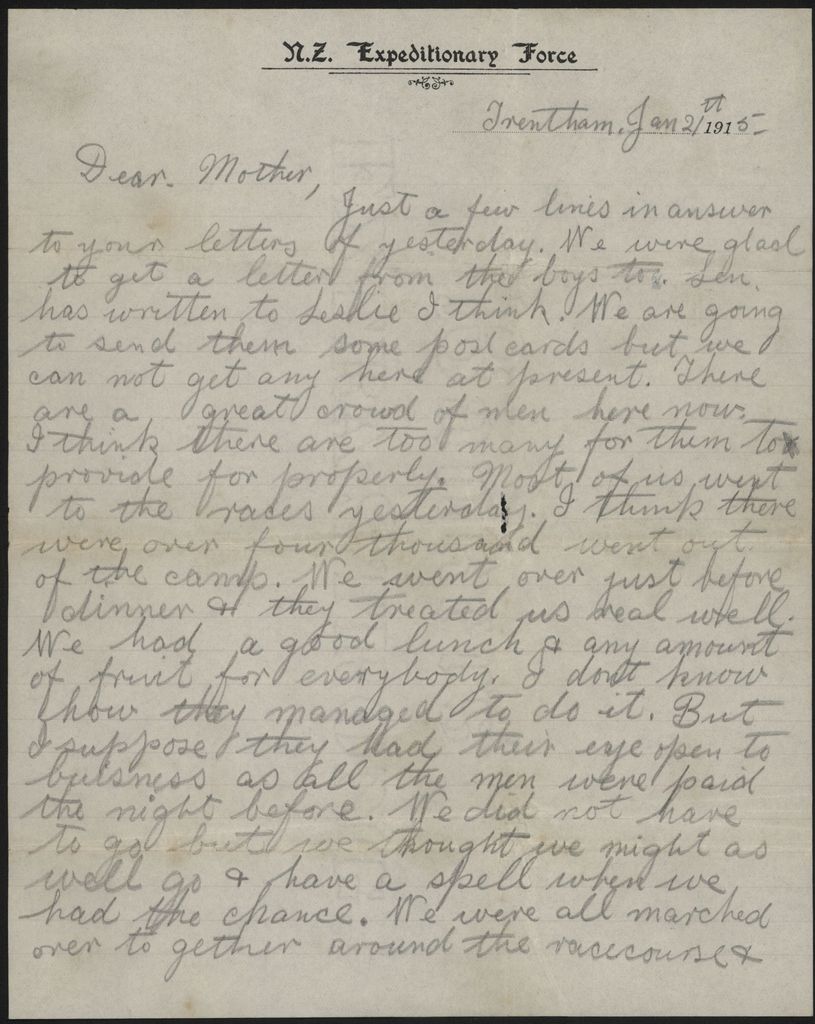 N.Z. Expeditionary Force
Trentham. Jan 21st 1915
Dear. Mother,
Just a few lines in answer
to your letters of yesterday. We were glad
to get a letter from the boys to. Len.
has written to Leslie I think. We are going
to send them some post cards but we
can not get any here at present. There
are a great crowd of men here now.
I think there are too many for them to
provide for properly. Most of us went
to the races yesterday. I think there
were over four thousand went out
of the camp. We went over just before
dinner & they treated us real well.
We had a good lunch & any amount
of fruit for everybody. I dont know
how they managed to do it. But
I suppose they had their eye open to
buisness as all the men were paid
the night before. We did not have
to go but we thought we might as
well go & have a spell when we
had the chance. We were all marched
over to gether around the racecourse &